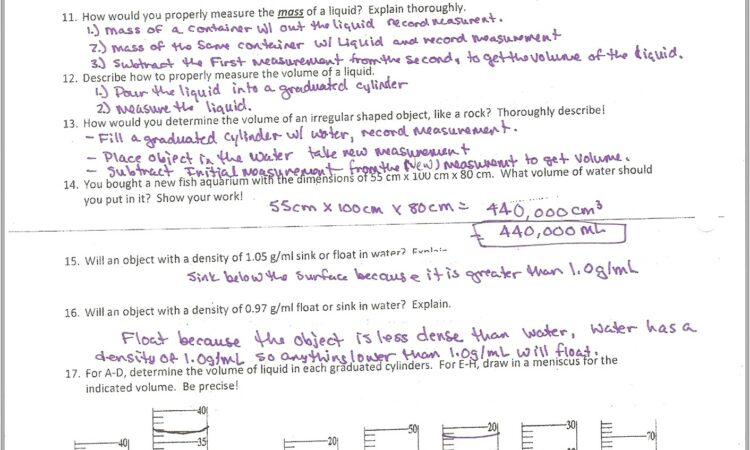 11. How would you properly measure the mass of a liquid? Explain thoroughly.
1.) mass of a container w/ out the liquid record measurement.
2.) mass of the same container w/ Liquid and record measurement
3.) Subtract the First measurement from the second, to get the volume of the liquid.
12. Describe how to properly measure the volume of a liquid.
1.) Pour the liquid into a graduated cylinder
2.) measure the liquid.
13. How would you determine the volume of an irregular shaped object, like a rock? Thoroughly describe!
- Fill a graduated cylinder w/ water, record measurement.
- Place object in the water take new measurement
- Subtract Initial measurement from the (New) measurement to get volume.
14. You bought a new fish aquarium with the dimensions of 55 cm x 100 cm x 80 cm. What volume of water should
you put in it? Show your work!
55cm x 100cm x 80cm = 440,000cm³
= 440,000mL
15. Will an object with a density of 1.05 g/ml sink or float in water?
Sink below the surface because it is greater than 1.0g/mL
16. Will an object with a density of 0.97 g/ml float or sink in water? Explain.
Float because the object is less dense than water, water has a
density of 1.0g/mL so anything lower than 1.0g/mL will float.
17. For A-D, determine the volume of liquid in each graduated cylinders. For E-H, draw in a meniscus for the
indicated volume. Be precise!
40 35 40 20 50 20 30 70